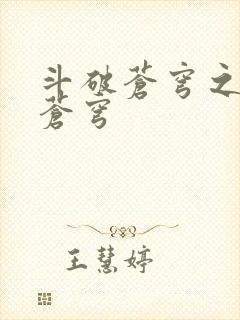 斗破蒼穹之
蒼穹
王慧婷